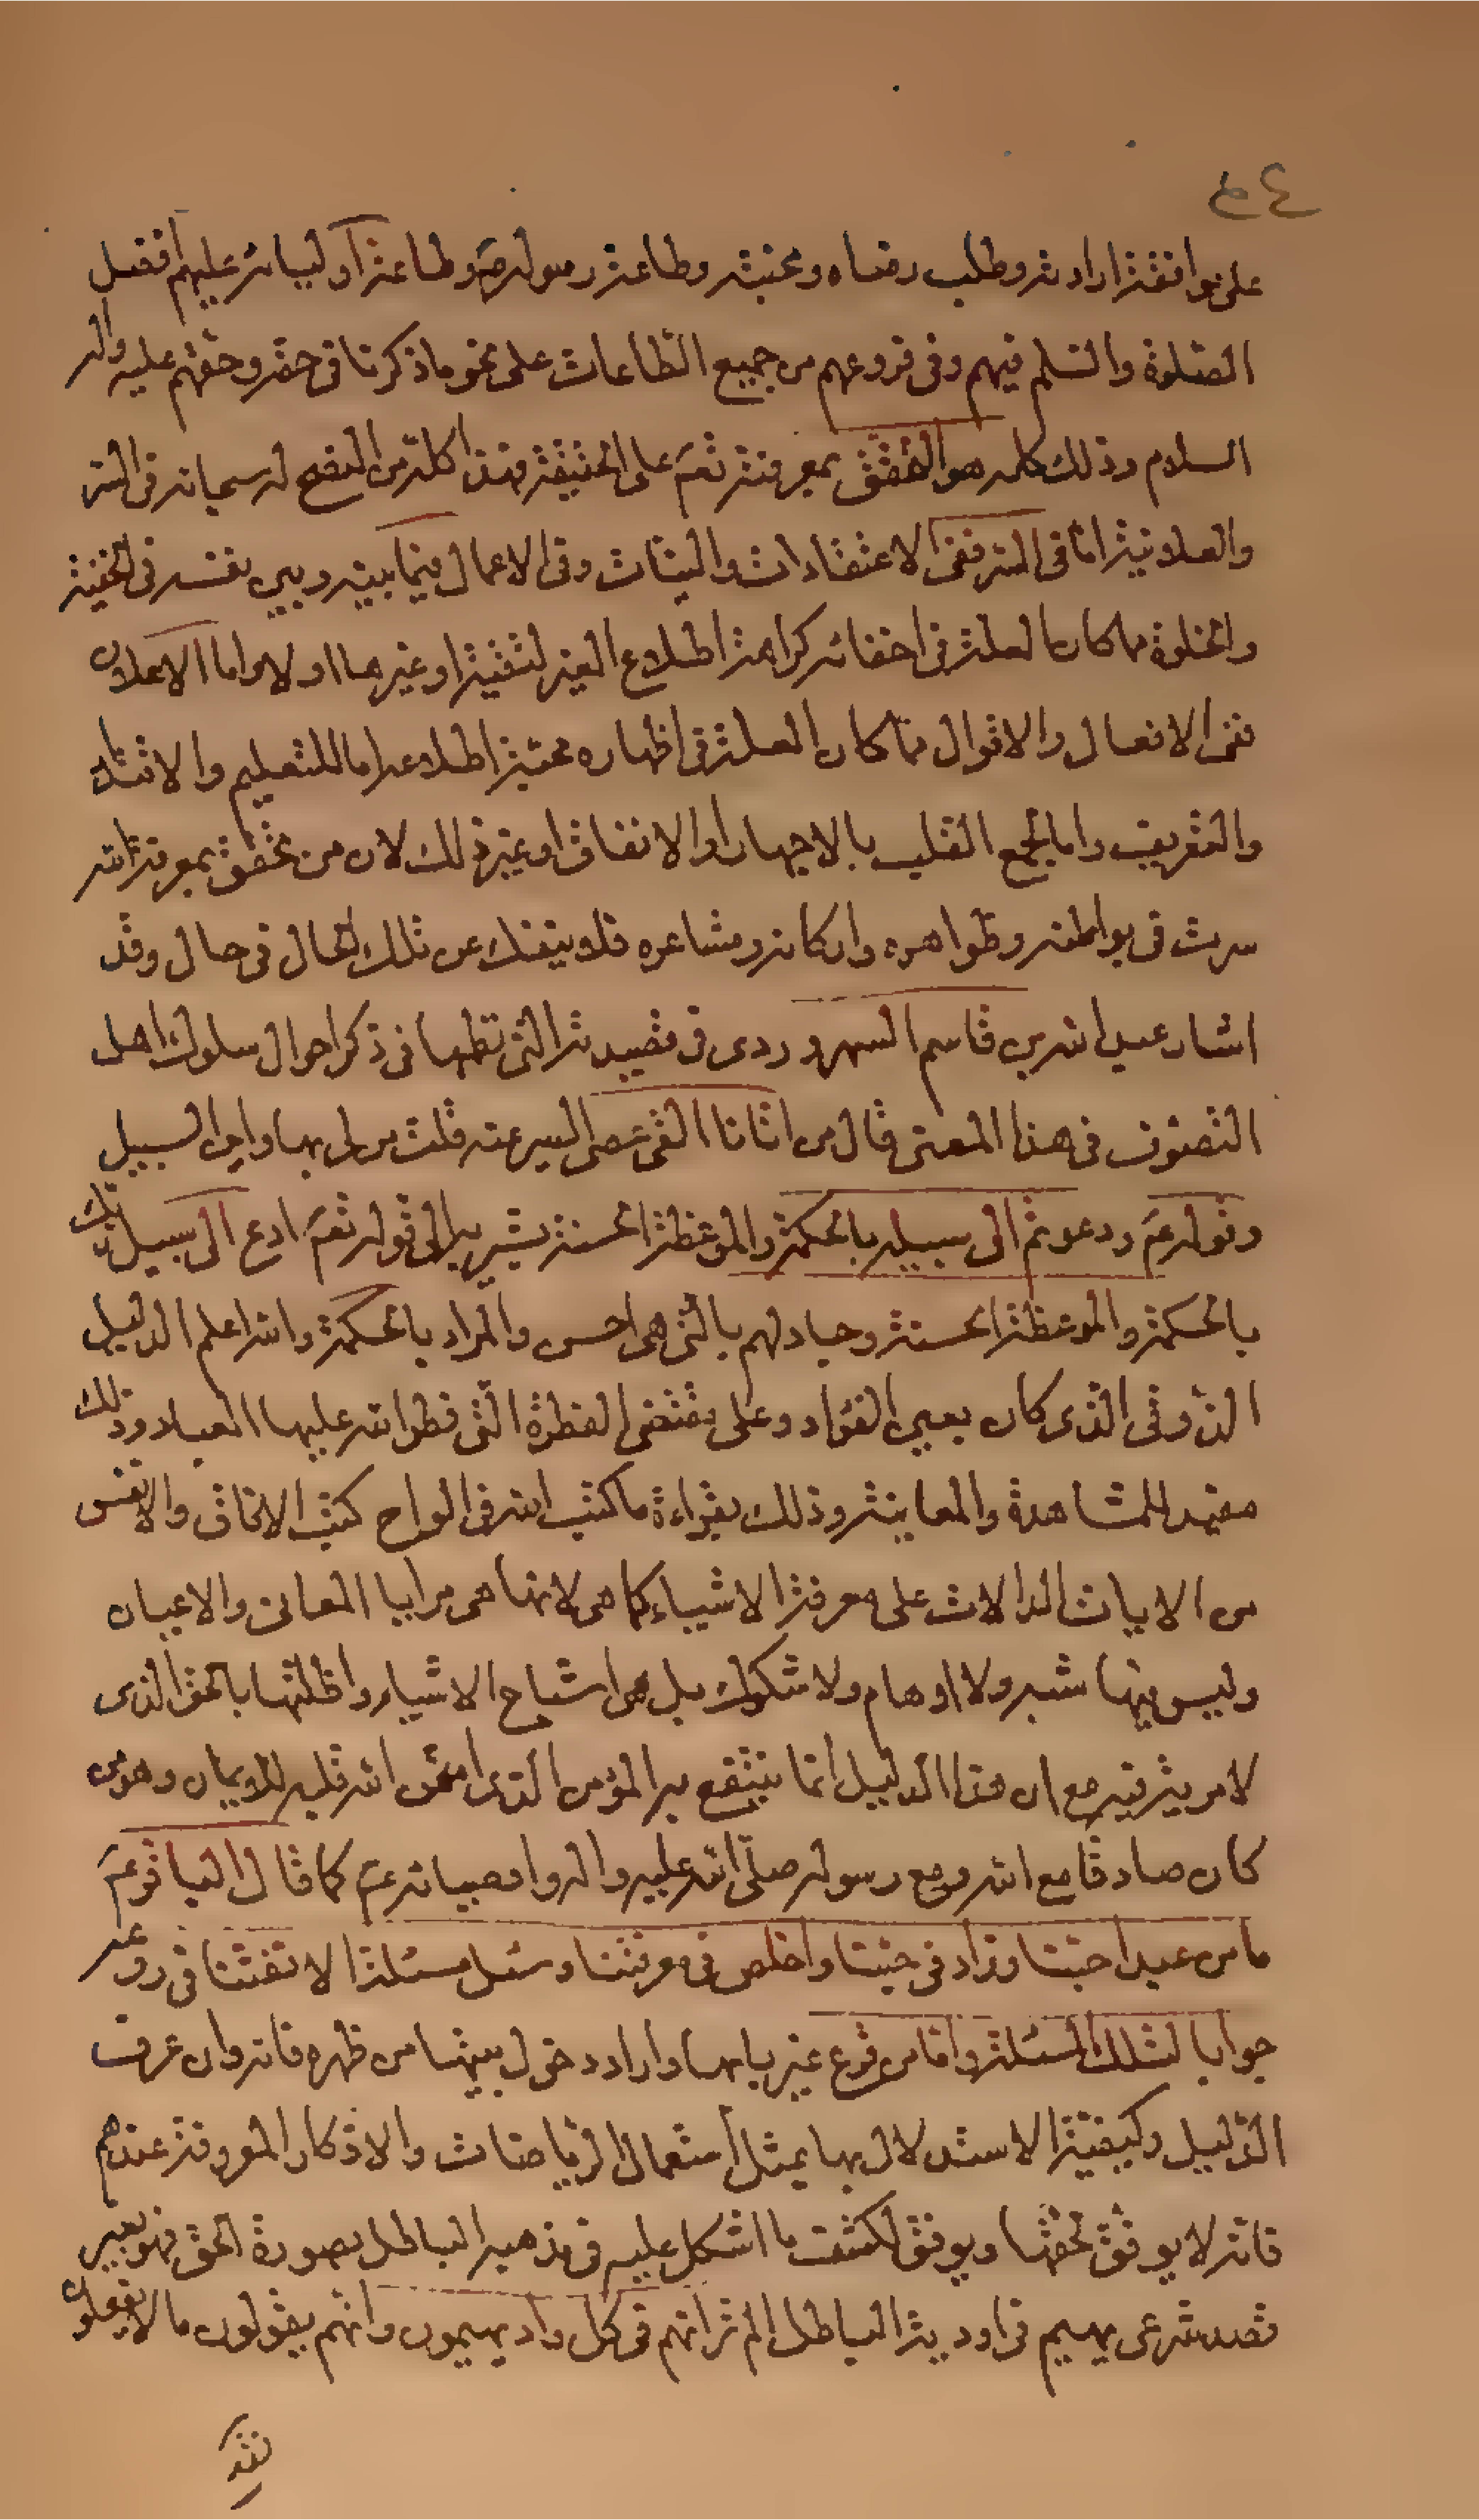 على موافقة ارادته وطلب رضاه ومحبته وطاعة رسوله ص وطاعة اوليائه عليهم افضل
الصلوة والسلم فيهم وفى فروعهم من جميع الطاعات على نحو ما ذكرنا فى حقه وحقهم عليه واله
السلام وذلك كله هو التحقق بمعرفته تعم على الحقيقة فهذا كله من النصح له سبحانه فى السر
والعلانية اما فى السر ففى الاعتقادات والنيات وفى الاعمال فيما بينه وبين نفسه فى الخفية
والخلوة مما كان العلة فى اخفائه كراهة اطلاع الغير لتقية او غيرها او لا واما الاعلان
ففى الافعال والاقوال مما كان العلة فى اظهاره محبة اطلاعه اما للتعليم والاقتداء
والتعريف واما لجمع القلب بالاجهار او الاتفاق او غير ذلك لان من تحقق بمعرفة الله
سرت فى بواطنه وظواهره واركانه ومشاعره فلا ينفك عن تلك الحال فى حال وقد
اشار عبد الله بن قاسم السهروردى فى قصيدته التى نظمها فى ذكر احوال سلوك اهل
التصوف فى هذا المعنى قال من اتانا القى عصى السير عنه قلت من لى بها واين السبيل
وقوله عم ودعوتم الى سبيله بالحكمة والموعظة الحسنة يشير به الى قوله تعم ادع الى سبيل ربك
بالحكمة والموعظة الحسنة وجادلهم بالتى هى احسن والمراد بالحكمة والله اعلم الدليل
الذوقى الذى كان بعين الفؤاد وعلى مقتضى الفطرة التى فطر الله عليها العباد وذلك
مفيد للمشاهدة والمعاينة وذلك بقراءة ما كتب الله فى الواح كتب الافاق والانفس
من الايات الدالات على معرفة الاشياء كما هى لانها هى مرايا المعانى والاعيان
وليس فيها شبه ولا اوهام ولا شكوك بل هى اشباح الاشياء واظلتها بالحق الذى
لا مرية فيه مع ان هذا الدليل انما ينتفع به المؤمن الذى امتحن الله قلبه للايمان وهو من
كان صادقا مع الله ومع رسوله صلى الله عليه واله واوصيائه عم كما قال الباقر عم
ما من عبد احبنا وزاد فى حبنا واخلص فى معرفتنا وسئل مسئلة الا نفثنا فى روعه
جوابا لتلك المسئلة واما من قرع غير بابها واراد دخول بيتها من ظهره فانه وان عرف
الدليل وكيفية الاستدلال بها بمثل استعمال الرياضات والاذكار المعروفة عندهم
فانه لا يوفق لحقها ويوفق لكشف ما اشكل عليه فى مذهبه الباطل بصورة الحق فهو بغير
قصد شرعى يهيم فى اودية الباطل الم تر انهم فى كل واد يهيمون وانهم يقولون ما لا يفعلون